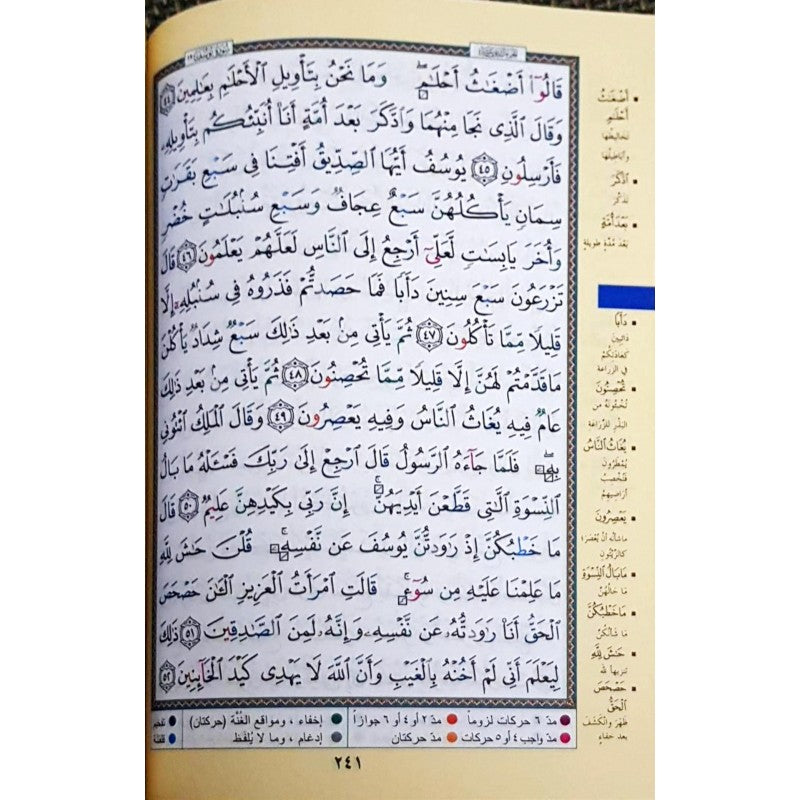 سورة يوسف ١٢
الجزء الثاني عشر
قَالُوٓا۟ أَضْغَٰثُ أَحْلَٰمٍۖ وَمَا نَحْنُ بِتَأْوِيلِ ٱلْأَحْلَٰمِ بِعَٰلِمِينَ ٤٤
وَقَالَ ٱلَّذِى نَجَا مِنْهُمَا وَٱدَّكَرَ بَعْدَ أُمَّةٍ أَنَا۠ أُنَبِّئُكُم بِتَأْوِيلِهِۦ
فَأَرْسِلُونِ ٤٥ يُوسُفُ أَيُّهَا ٱلصِّدِّيقُ أَفْتِنَا فِى سَبْعِ بَقَرَٰتٍ
سِمَانٍ يَأْكُلُهُنَّ سَبْعٌ عِجَافٌ وَسَبْعِ سُنۢبُلَٰتٍ خُضْرٍ
وَأُخَرَ يَابِسَٰتٍ لَّعَلِّىٓ أَرْجِعُ إِلَى ٱلنَّاسِ لَعَلَّهُمْ يَعْلَمُونَ ٤٦ قَالَ
تَزْرَعُونَ سَبْعَ سِنِينَ دَأَبًا فَمَا حَصَدتُّمْ فَذَرُوهُ فِى سُنۢبُلِهِۦٓ إِلَّا
قَلِيلًا مِّمَّا تَأْكُلُونَ ٤٧ ثُمَّ يَأْتِى مِنۢ بَعْدِ ذَٰلِكَ سَبْعٌ شِدَادٌ يَأْكُلْنَ
مَا قَدَّمْتُمْ لَهُنَّ إِلَّا قَلِيلًا مِّمَّا تُحْصِنُونَ ٤٨ ثُمَّ يَأْتِى مِنۢ بَعْدِ ذَٰلِكَ
عَامٌ فِيهِ يُغَاثُ ٱلنَّاسُ وَفِيهِ يَعْصِرُونَ ٤٩ وَقَالَ ٱلْمَلِكُ ٱئْتُونِى
بِهِۦۖ فَلَمَّا جَآءَهُ ٱلرَّسُولُ قَالَ ٱرْجِعْ إِلَىٰ رَبِّكَ فَسْـَٔلْهُ مَا بَالُ
ٱلنِّسْوَةِ ٱلَّٰتِى قَطَّعْنَ أَيْدِيَهُنَّۚ إِنَّ رَبِّى بِكَيْدِهِنَّ عَلِيمٌ ٥٠ قَالَ
مَا خَطْبُكُنَّ إِذْ رَٰوَدتُّنَّ يُوسُفَ عَن نَّفْسِهِۦۚ قُلْنَ حَٰشَ لِلَّهِ
مَا عَلِمْنَا عَلَيْهِ مِن سُوٓءٍۚ قَالَتِ ٱمْرَأَتُ ٱلْعَزِيزِ ٱلْـَٰٔنَ حَصْحَصَ
ٱلْحَقُّ أَنَا۠ رَٰوَدتُّهُۥ عَن نَّفْسِهِۦ وَإِنَّهُۥ لَمِنَ ٱلصَّٰدِقِينَ ٥١ ذَٰلِكَ
لِيَعْلَمَ أَنِّى لَمْ أَخُنْهُ بِٱلْغَيْبِ وَأَنَّ ٱللَّهَ لَا يَهْدِى كَيْدَ ٱلْخَآئِنِينَ ٥٢
أَضْغَٰثُ
أَحْلَٰمٍ
تخاليطها
وأباطيلها
ٱدَّكَرَ
تذكّر
بَعْدَ أُمَّةٍ
بعد مدّة طويلة
دَأَبًا
دائبين
كعادتكم
في الزراعة
تُحْصِنُونَ
تخبئونه من
البذر للزراعة
يُغَاثُ ٱلنَّاسُ
يمطرون
فتخصب
أراضيهم
يَعْصِرُونَ
ما شأنه أن يُعصَر
كالزيتون
مَا بَالُ ٱلنِّسْوَةِ
ما حالهنّ
مَا خَطْبُكُنَّ
ما شأنكنّ
حَٰشَ لِلَّهِ
تنزيها لله
حَصْحَصَ
ٱلْحَقُّ
ظهر وانكشف
بعد خفاء
مدّ ٦ حركات لزوماً مدّ ٢ أو ٤ أو ٦ جوازاً إخفاء ، ومواقع الغُنَّة (حركتان)
مدّ واجب ٤ أو ٥ حركات مدّ حركتان إدغام ، وما لا يُلفَظ
٢٤١